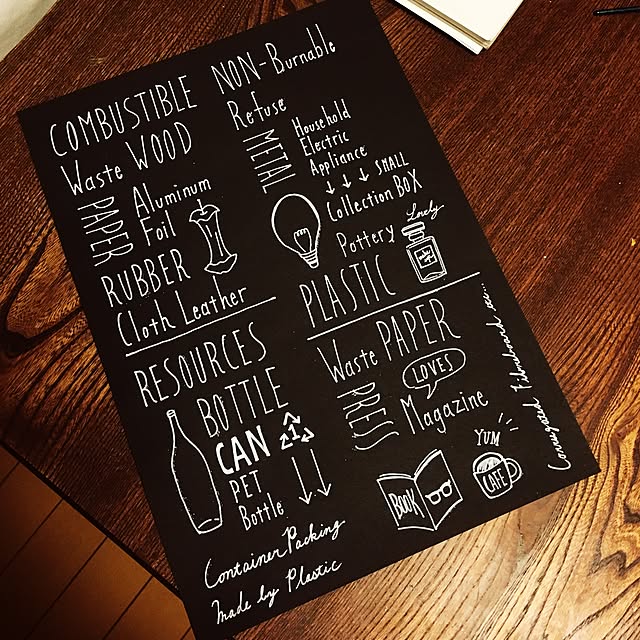 COMBUSTIBLE
Waste WOOD
PAPER
Aluminum
Foil
RUBBER
Cloth Leather
NON-Burnable
Refuse
METAL
Household
Electric
Appliance
SMALL
Collection BOX
Pottery
Lovely
PLASTIC
RESOURCES
BOTTLE
CAN
PET
Bottle
Container Packing
Made by Plastic
Waste PAPER
LOVES
PRESS
Magazine
BOOK
YUM
CAFE
Corrugated Fibreboard